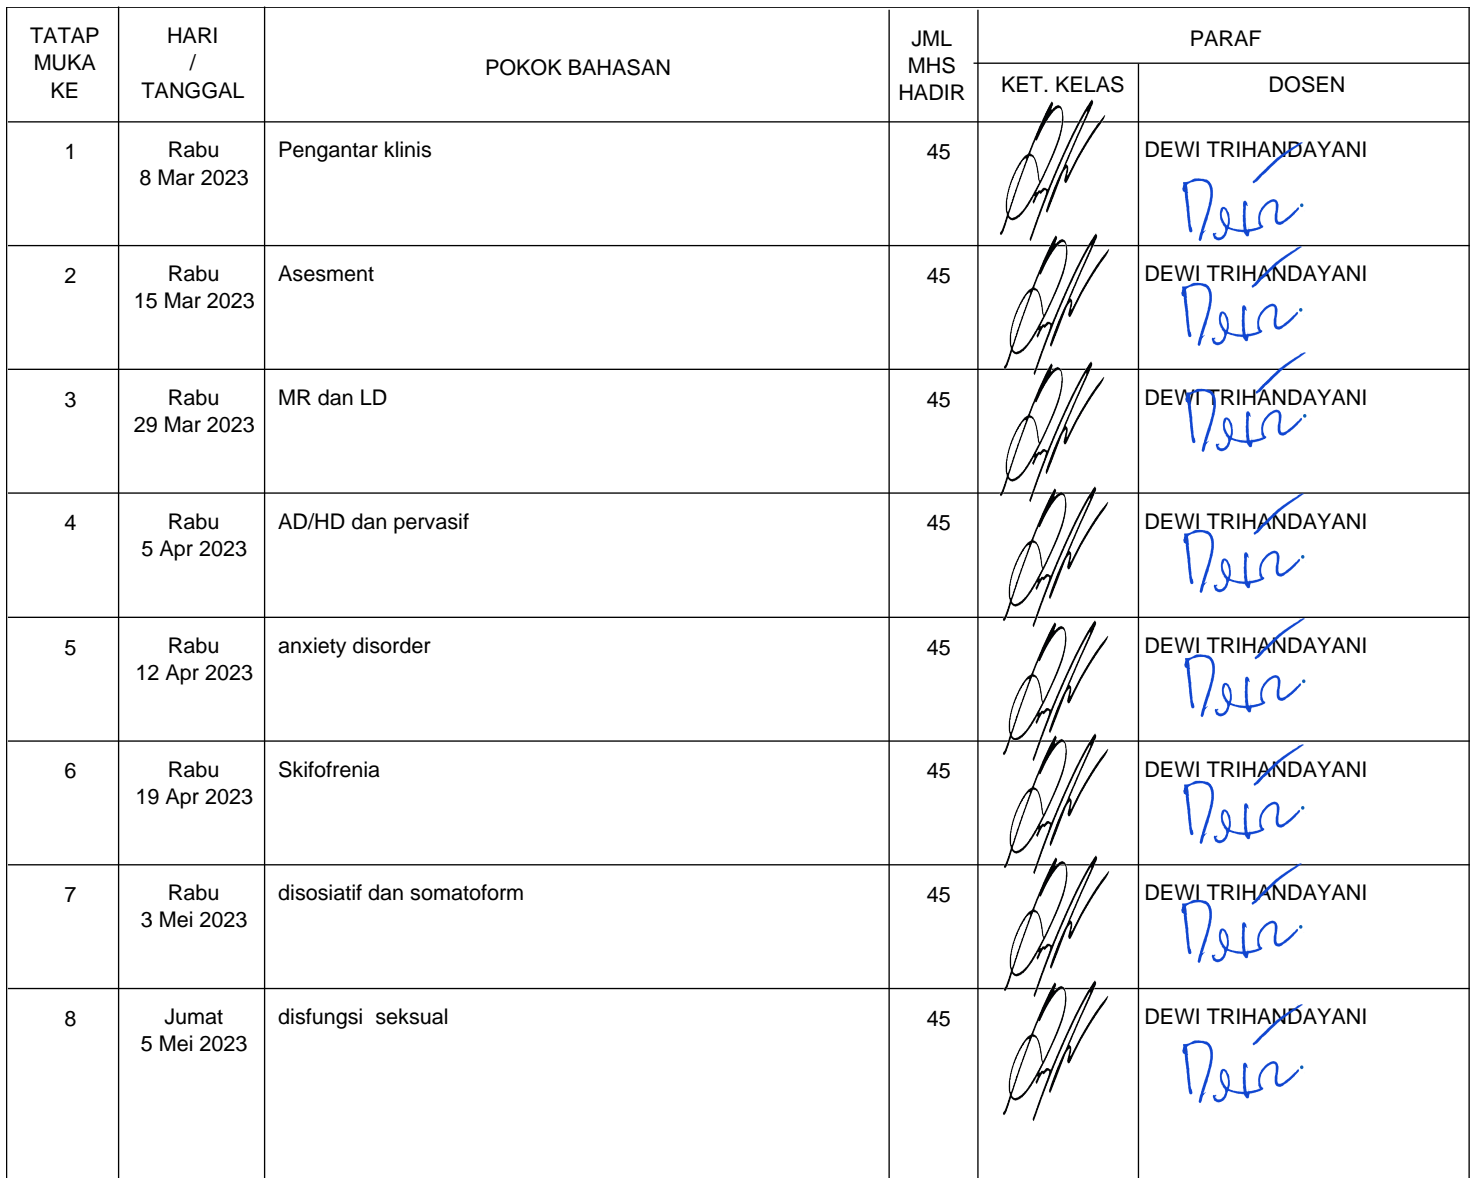 TATAP MUKA KE
HARI / TANGGAL
POKOK BAHASAN
JML MHS HADIR
PARAF
KET. KELAS
DOSEN
1
Rabu
8 Mar 2023
Pengantar klinis
45
DEWI TRIHANDAYANI
2
Rabu
15 Mar 2023
Asesment
45
DEWI TRIHANDAYANI
3
Rabu
29 Mar 2023
MR dan LD
45
DEWI TRIHANDAYANI
4
Rabu
5 Apr 2023
AD/HD dan pervasif
45
DEWI TRIHANDAYANI
5
Rabu
12 Apr 2023
anxiety disorder
45
DEWI TRIHANDAYANI
6
Rabu
19 Apr 2023
Skifofrenia
45
DEWI TRIHANDAYANI
7
Rabu
3 Mei 2023
disosiatif dan somatoform
45
DEWI TRIHANDAYANI
8
Jumat
5 Mei 2023
disfungsi  seksual
45
DEWI TRIHANDAYANI